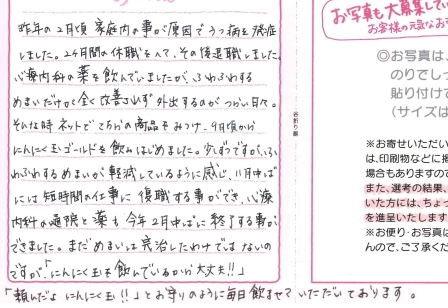 昨年の2月頃 家庭内の事が原因でうつ病を発症
しました。2ヶ月間の休職をへて、その後退職しました。
心療内科の薬を飲んでいましたが、ふわふわする
めまいだけが全く改善されず 外出するのがつらい日々。
そんな時ネットでこちらの商品をみつけ、9月頃から
にんにく玉ゴールドを飲みはじめました。少しずつですが、ふ
わふわするめまいが軽減しているように感じ、11月中ば
には短時間の仕事に復職する事ができ、心療
内科の通院と薬も今年2月中ばに終了する事が
できました。まだめまいは完治したわけではないの
ですが、「にんにく玉を飲んでいるから大丈夫!!」
「頼んだよ にんにく玉!!」とお守りのように毎日飲ませていただいております。
谷折り線
お写真も大募集してい
お客様の元気なお
◎お写真は、
のりでしっ
貼り付けて
(サイズは
※お寄せいただい
は、印刷物などに掲
場合もありますので
また、選考の結果、
いた方には、ちょっ
を進呈いたします
※お便り・お写真は
んので、ご了承くだ